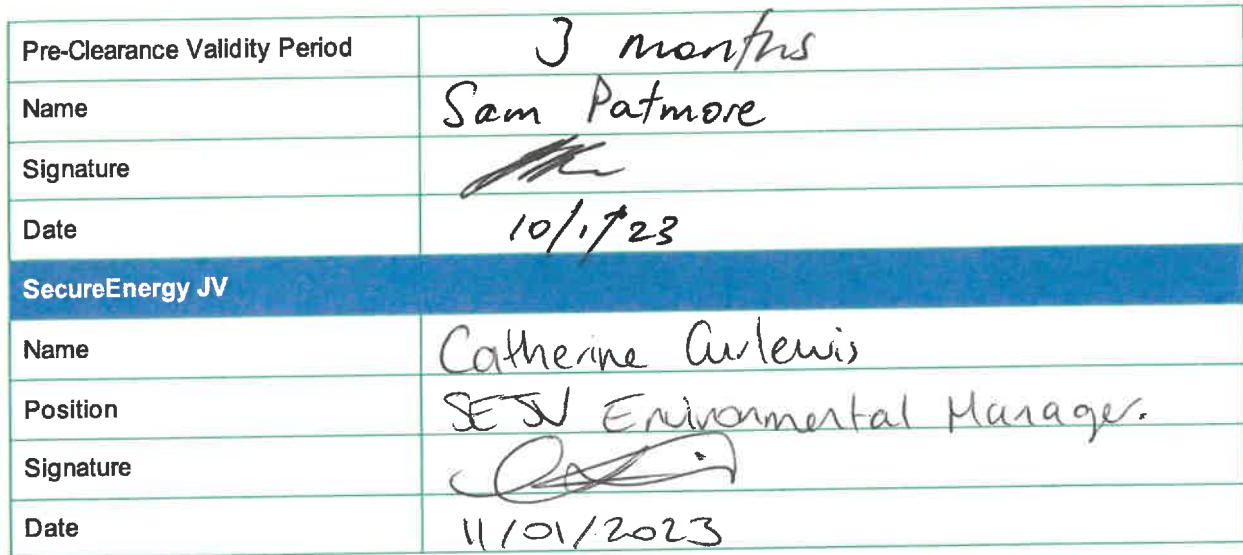 Pre-Clearance Validity Period 3 months
Name Sam Patmore
Signature
Date 10/1/23
SecureEnergy JV
Name Catherine Curlewis
Position SEJV Environmental Manager.
Signature
Date 11/01/2023